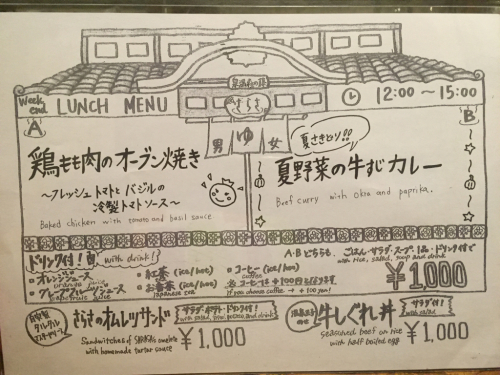 Week
end LUNCH MENU
さらさ
12:00〜15:00
男 ゆ 女
A
鶏もも肉のオーブン焼き
〜フレッシュトマトとバジルの
冷製トマトソース〜
Baked chicken with tomato and basil sauce
B
夏さきどり!!
夏野菜の牛すじカレー
Beef curry with okra and paprika.
ドリンク付! with drink!
・オレンジジュース
orange juice
・グレープフルーツジュース
grapefruits juice
・紅茶 (ice/hot)
・お番茶 (ice/hot)
Japanese tea
・コーヒー (ice/hot)
coffee
※コーヒーは+100円となります
if you choose coffee → +100 yen!
A・Bどちらも、ごはん・サラダ・スープ・1品・ドリンク付で
with rice, salad, soup and drink
¥1,000
自家製
タルタル
さらさのオムレツサンド
サラダ・ポテト・ドリンク付!
Sandwitches of SARASA's omelette
with homemade tartar sauce
¥1,000
温泉玉子
のせ
牛しぐれ丼
サラダ付!
with salad
seasoned beef on rice
with half boiled egg
¥1,000